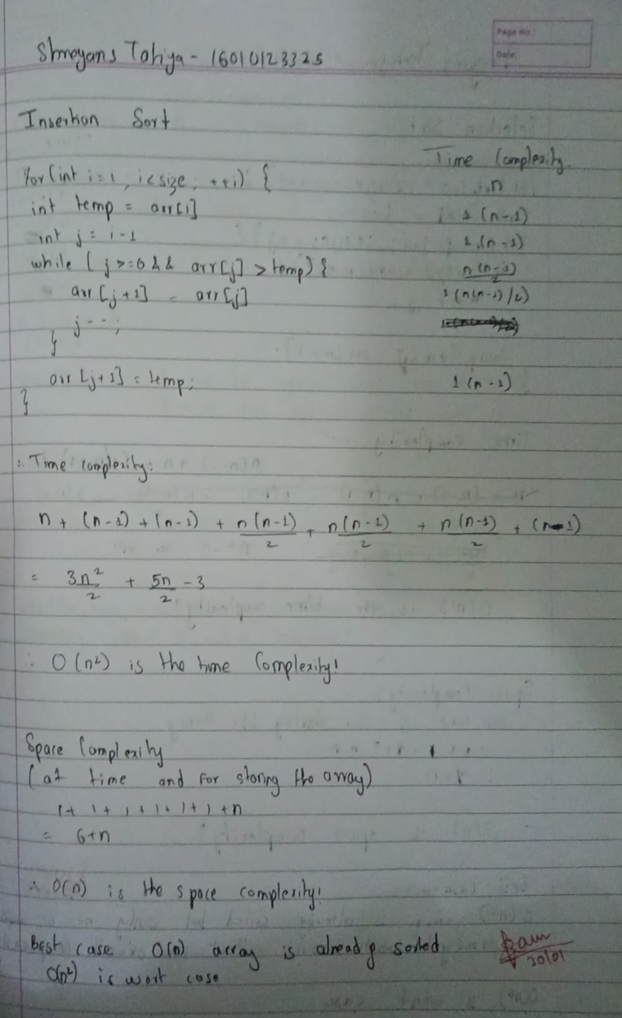 Page No.:
Date:
Shreyans Tatiya - 16010123325
Insertion Sort
Time Complexity
for (int i=1, i<size, ++i) { n
int temp = arr[i] 1 (n-1)
int j = i-1 1 (n-1)
while ( j>=0 && arr[j] > temp) { n(n-1)/2
arr [j+1] = arr[j] 1(n(n-1)/2)
j--;
}
arr [j+1] = temp; 1 (n-1)
}
∴ Time complexity:
n + (n-1) + (n-1) + n(n-1)/2 + n(n-1)/2 + n(n-1)/2 + (n-1)
= 3n²/2 + 5n/2 - 3
∴ O(n²) is the time complexity!
Space Complexity
(at time and for storing the array)
1+1+1+1+1+1+n
= 6+n
∴ O(n) is the space complexity!
Best case O(n) array is already sorted
O(n²) is worst case
20/01